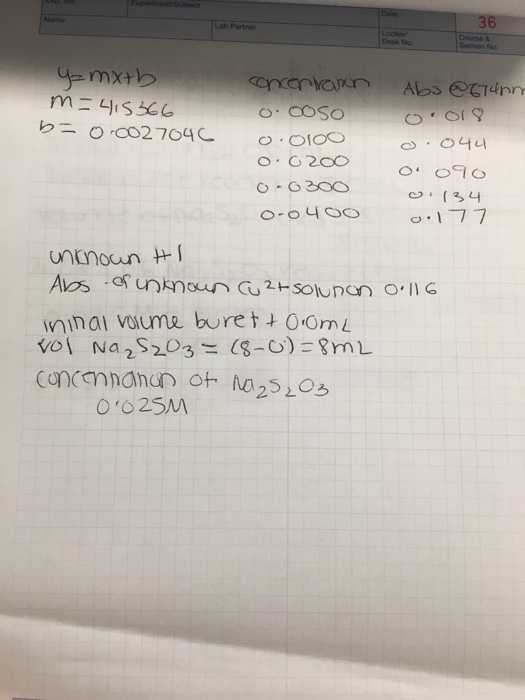 Experiment/Subject
Date
36
Name
Lab Partner
Locker/
Desk No.
Course &
Section No.
y=mx+b concentration Abs @674nm
m = 4.15366 0.0050 0.018
b = 0.0027046 0.0100 0.044
0.0200 0.090
0.0300 0.134
0.0400 0.177
unknown #1
Abs of unknown Cu2+ solution 0.116
initial volume buret + 0.0mL
vol Na2S2O3 = (8-0) = 8mL
concentration of Na2S2O3
0.025M